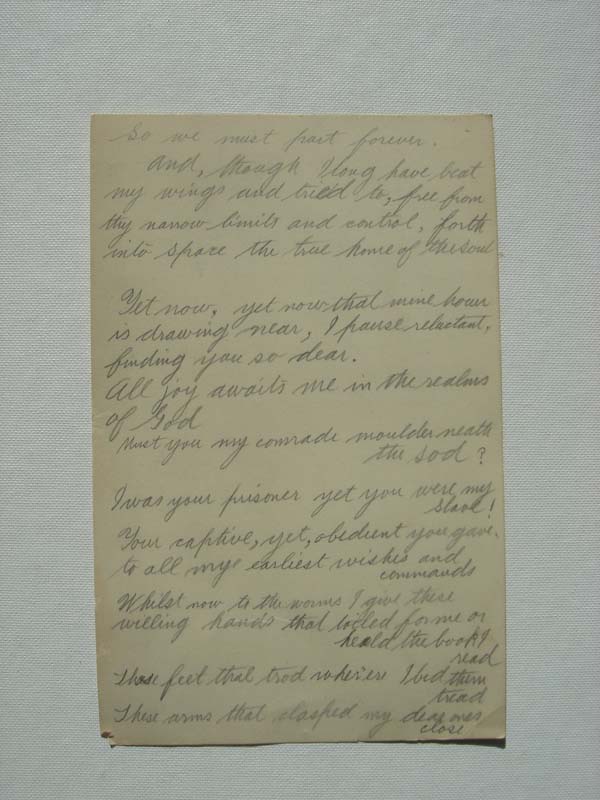 So we must part forever.
And, though I long have beat
my wings and tried to, free from
thy narrow limits and control, forth
into space the true home of the soul
Yet now, yet now that mine hour
is drawing near, I pause reluctant,
finding you so dear.
All joy awaits me in the realms
of God
Must you my comrade moulder neath
the sod?
I was your prisoner yet you were my
Slave!
Your captive, yet, obedient you gave.
to all my earliest wishes and
commands
Whilst now to the worms I give these
willing hands that toiled for me or
held the book I
read
Those feet that trod wher'ere I bid them
tread
These arms that clasped my dear ones
close